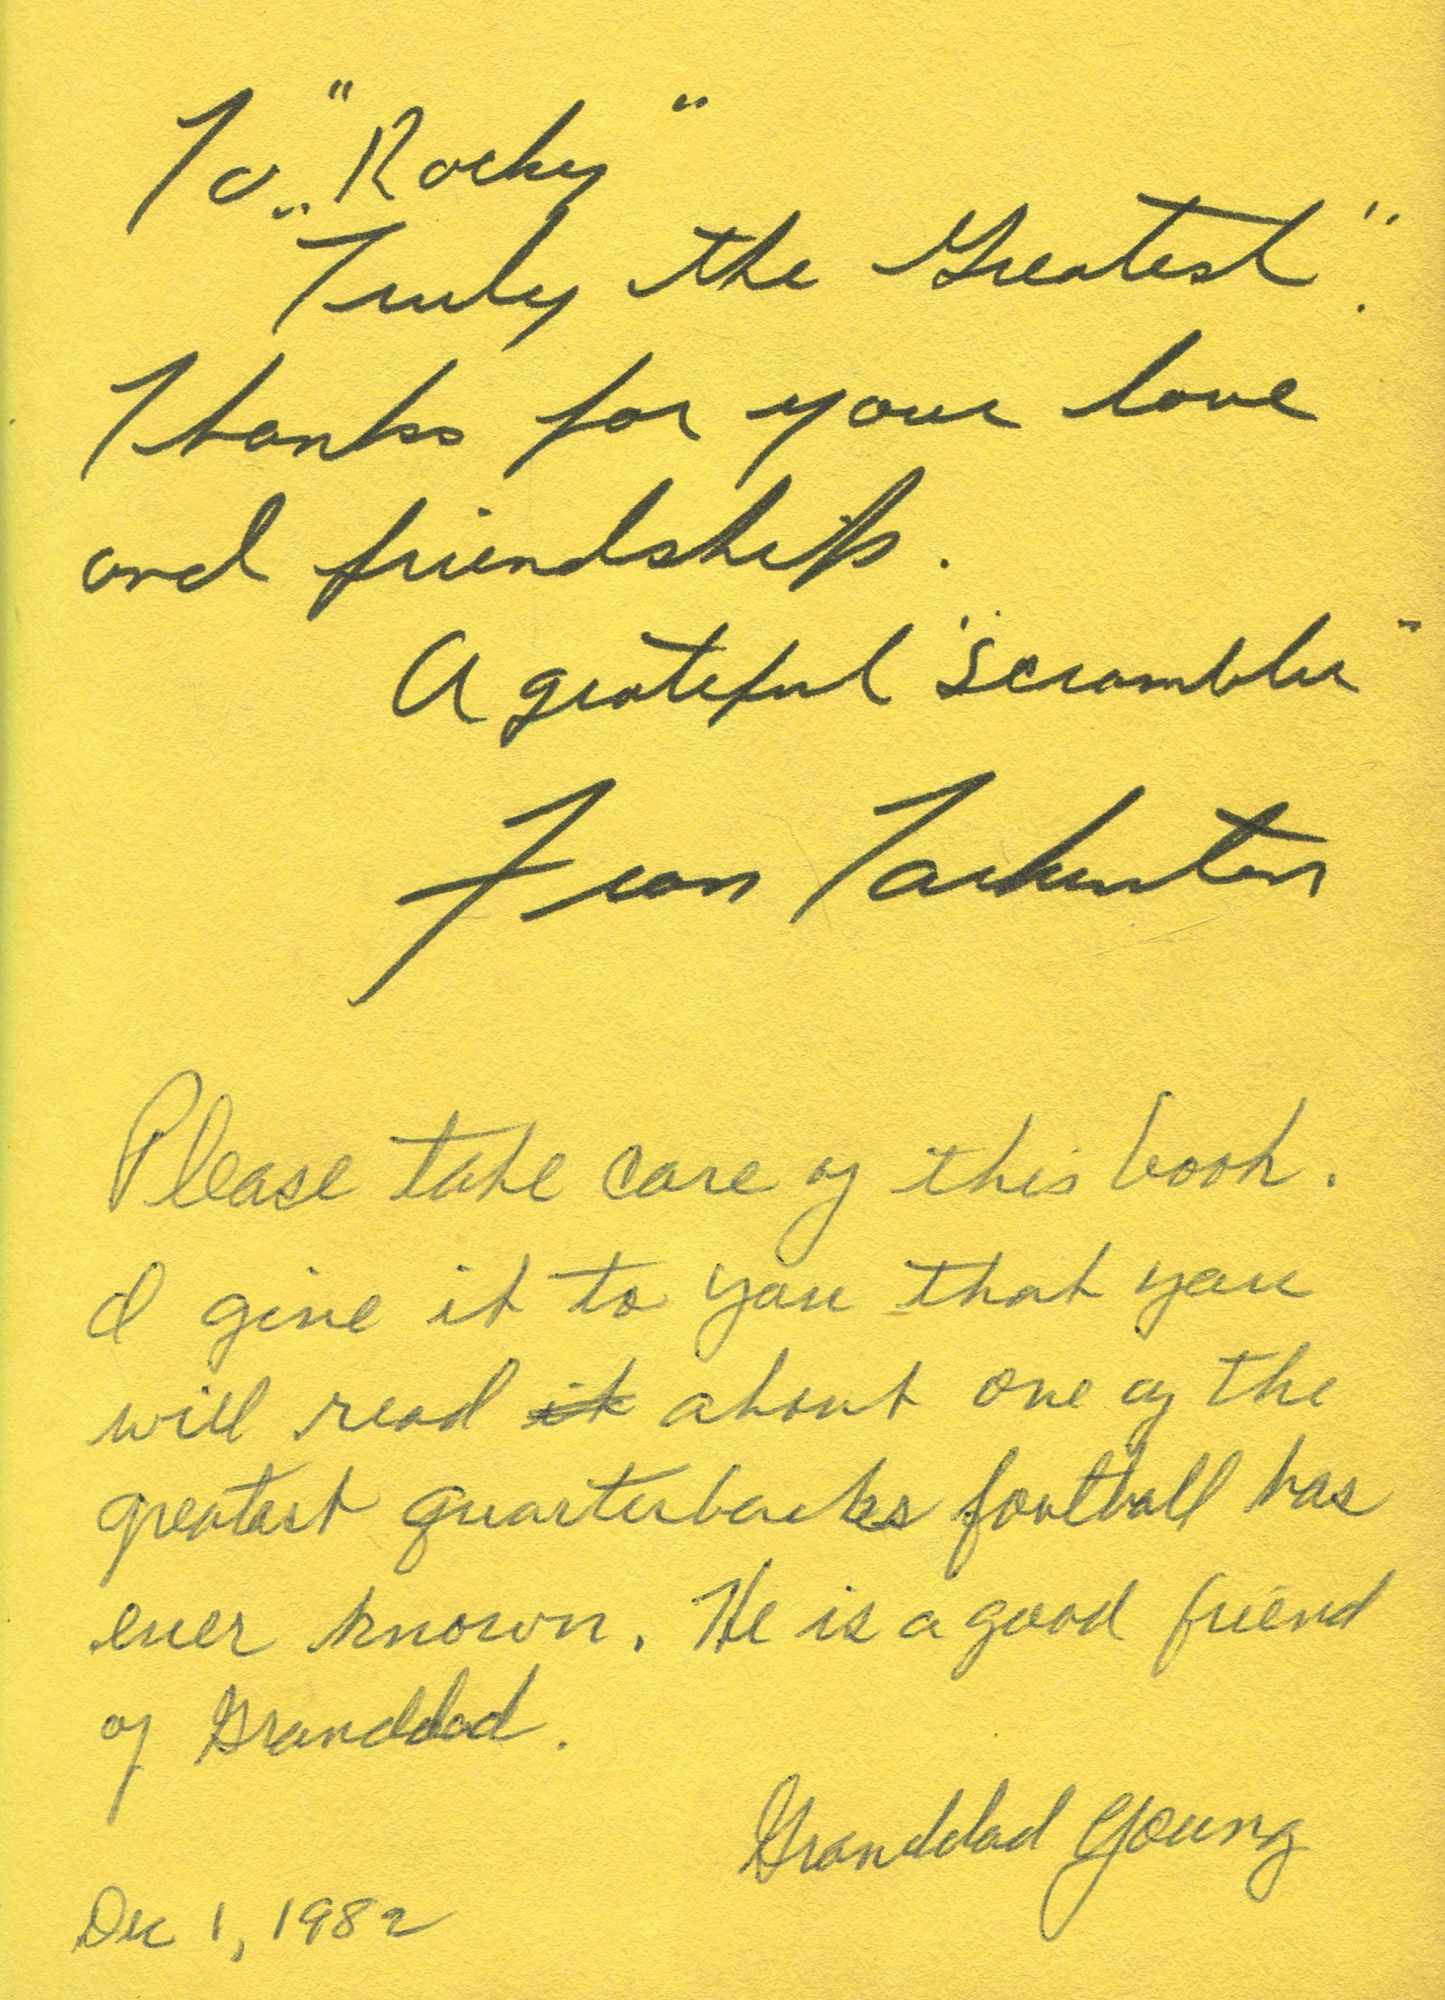 To "Rocky"
"Truly the Greatest".
Thanks for your love
and friendship.
A grateful "Scrambler"
Fran Tarkenton
Please take care of this book.
I give it to you that you
will read it about one of the
greatest quarterbacks football has
ever known. He is a good friend
of Granddad.
Granddad Young
Dec 1, 1982